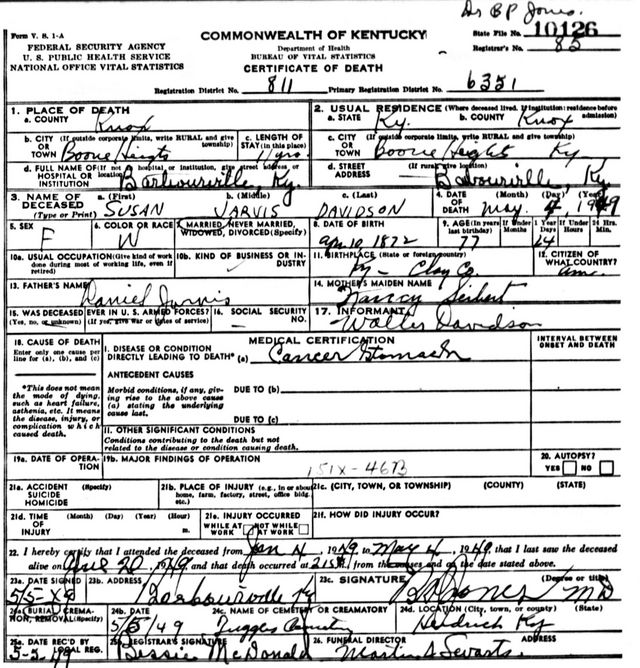 Dr B P Jones
Form V. S. 1-A
COMMONWEALTH OF KENTUCKY
State File No. 10126
FEDERAL SECURITY AGENCY
Department of Health
Registrar's No. 85
U. S. PUBLIC HEALTH SERVICE
BUREAU OF VITAL STATISTICS
NATIONAL OFFICE VITAL STATISTICS
CERTIFICATE OF DEATH
Registration District No. 811 Primary Registration District No. 6351
1. PLACE OF DEATH
a. COUNTY Knox
2. USUAL RESIDENCE (Where deceased lived. If institution: residence before admission)
a. STATE Ky. b. COUNTY Knox
b. CITY (If outside corporate limits, write RURAL and give township) OR TOWN Boone Heights
c. LENGTH OF STAY (in this place) 11 yrs.
c. CITY (If outside corporate limits, write RURAL and give township) OR TOWN Boone Heights Ky
d. FULL NAME OF (If not in hospital or institution, give street address or location) HOSPITAL OR INSTITUTION Barbourville, Ky.
d. STREET ADDRESS (If rural, give location) Barbourville Ky
3. NAME OF DECEASED (Type or Print)
a. (First) SUSAN b. (Middle) JARVIS c. (Last) DAVIDSON
4. DATE OF DEATH (Month) (Day) (Year) May 4 1949
5. SEX F
6. COLOR OR RACE W
7. MARRIED, NEVER MARRIED, WIDOWED, DIVORCED (Specify)
8. DATE OF BIRTH Apr 10, 1872
9. AGE (In years last birthday) 77
If Under 1 Year Months Days 24
If Under 24 Hrs. Hours Min.
10a. USUAL OCCUPATION (Give kind of work done during most of working life, even if retired)
10b. KIND OF BUSINESS OR INDUSTRY
11. BIRTHPLACE (State or foreign country) Ky - Clay Co.
12. CITIZEN OF WHAT COUNTRY? Ame.
13. FATHER'S NAME Daniel Jarvis
14. MOTHER'S MAIDEN NAME Nancy
15. WAS DECEASED EVER IN U. S. ARMED FORCES? (Yes, no, or unknown) (If yes, give war or dates of service)
16. SOCIAL SECURITY NO.
17. INFORMANT Walter Davidson
18. CAUSE OF DEATH
Enter only one cause per line for (a), (b), and (c)
MEDICAL CERTIFICATION
INTERVAL BETWEEN ONSET AND DEATH
I. DISEASE OR CONDITION DIRECTLY LEADING TO DEATH* (a) Cancer Stomach
*This does not mean the mode of dying, such as heart failure, asthenia, etc. It means the disease, injury, or complication which caused death.
ANTECEDENT CAUSES
Morbid conditions, if any, giving rise to the above cause (a) stating the underlying cause last.
DUE TO (b)
DUE TO (c)
II. OTHER SIGNIFICANT CONDITIONS
Conditions contributing to the death but not related to the disease or condition causing death.
19a. DATE OF OPERATION
19b. MAJOR FINDINGS OF OPERATION
151X-46B
20. AUTOPSY?
YES NO
21a. ACCIDENT SUICIDE HOMICIDE (Specify)
21b. PLACE OF INJURY (e.g., in or about home, farm, factory, street, office bldg. etc.)
21c. (CITY, TOWN, OR TOWNSHIP) (COUNTY) (STATE)
21d. TIME OF INJURY (Month) (Day) (Year) (Hour) m.
21e. INJURY OCCURRED
WHILE AT WORK NOT WHILE AT WORK
21f. HOW DID INJURY OCCUR?
22. I hereby certify that I attended the deceased from Jan 4, 1949 to May 4, 1949, that I last saw the deceased
alive on April 20, 1949 and that death occurred at from the causes and on the date stated above.
23a. DATE SIGNED 5/5-49
23b. ADDRESS Barbourville Ky
23c. SIGNATURE B P Jones MD (Degree or title)
24a. BURIAL, CREMATION, REMOVAL (Specify)
24b. DATE 5/5/49
24c. NAME OF CEMETERY OR CREMATORY Cemetery
24d. LOCATION (City, town, or county) (State) Heidrick Ky
25a. DATE REC'D BY LOCAL REG. 5-5-49
25b. REGISTRAR'S SIGNATURE Bessie McDonald
26. FUNERAL DIRECTOR ADDRESS